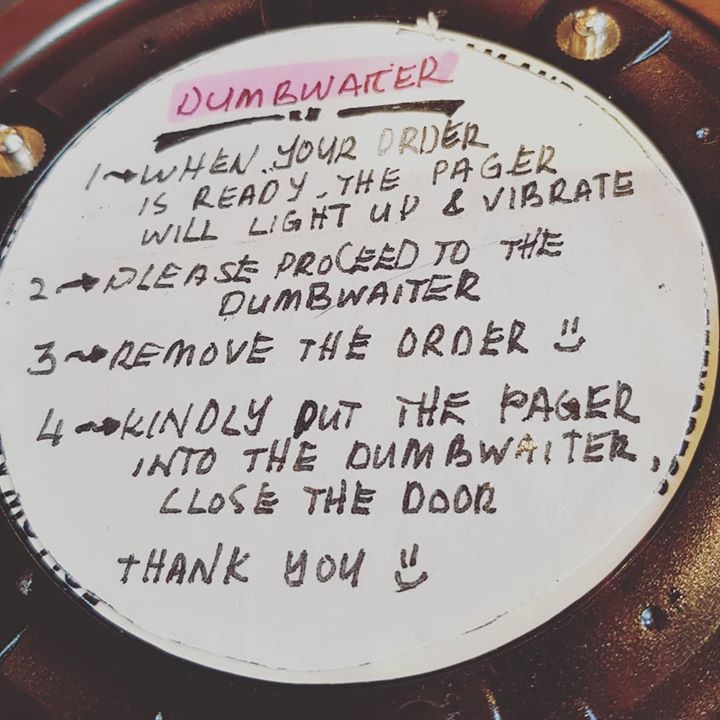 DUMBWAITER
1→WHEN YOUR ORDER
IS READY. THE PAGER
WILL LIGHT UP & VIBRATE
2→PLEASE PROCEED TO THE
DUMBWAITER
3→REMOVE THE ORDER
4→KINDLY PUT THE PAGER
INTO THE DUMBWAITER,
CLOSE THE DOOR
THANK YOU